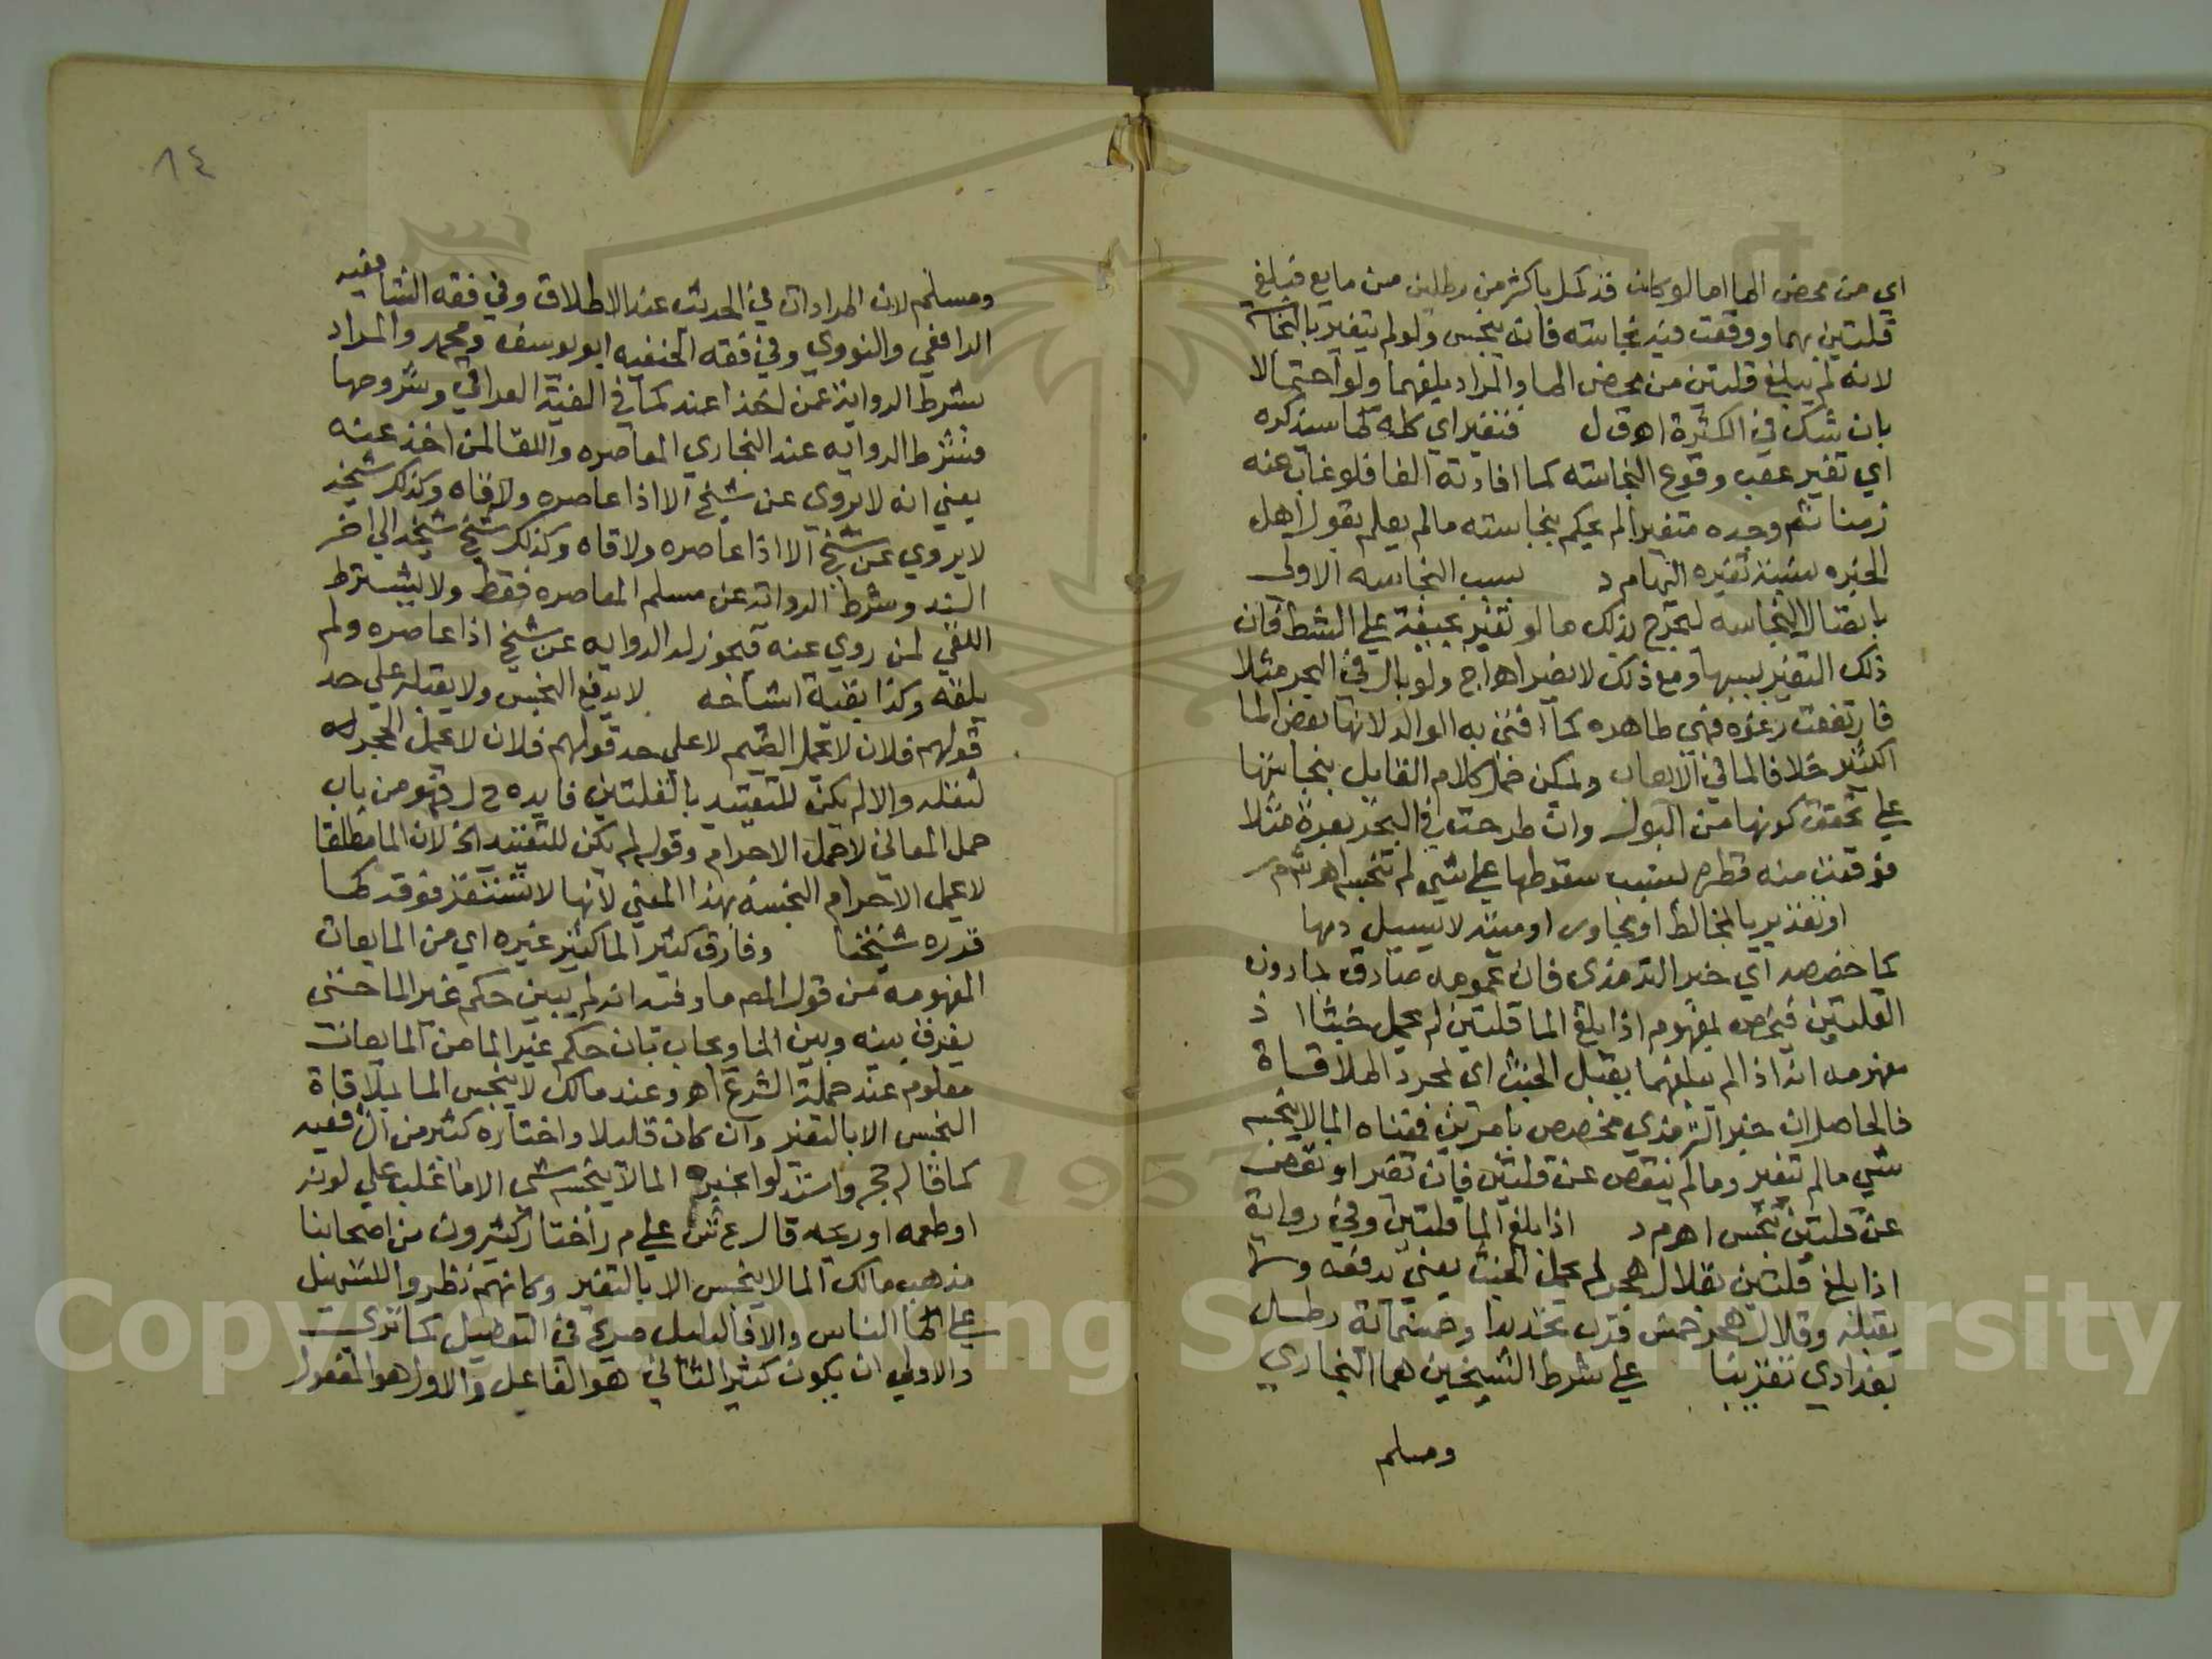 اي من محض الما اما لو كان قد كمل باكثر من رطلين من مايع فبلغ
قلتين بهما ووقعت فيه نجاسته فانه ينجس ولو لم يتغير بالنجاسة
لانه لم يبلغ قلتين من محض الما والمراد بلغهما ولو احتمالا
بان شك في الكثرة اه ق ل فتغير اي كله لما سيذكره
اي تغير عقب وقوع النجاسته كما افادته الفا فلو غاب عنه
زمنا ثم وجده متغيرا لم يحكم بنجاسته مالم يعلم بقول اهل
الخبره بنسبة تغيره اليها م د بسبب النجاسه الاولى
باتصال النجاسه ليخرج بذلك ما لو تغير بجيفة علي الشط فان
ذلك التغير بسببها ومع ذلك لا يضر اه اج ولو بال في البحر مثلا
فارتفعت رغوه فهي طاهره كما افتى به الوالد لانها بعض الما
الكثير خلافا لما في العباب ويمكن حمل كلام القايل بنجاستها
علي تحقق كونها من البول وان طرحت في البحر بعرة مثلا
فوقعت منه قطرة بسبب سقوطها علي شي لم تنجسه اه ش م ر
او تقدير بالمخالط او مجاور او ميتة لا يسيل دمها
كما خصصه اي خبر الترمذي فان عمومه صادق بما دون
القلتين فيخص بمفهوم اذا بلغ الما قلتين لم يحمل خبثا اذ
مفهومه انه اذا لم يبلغهما يقبل الخبث اي بمجرد الملاقاة
فالحاصل ان خبر الترمذي مخصص بامرين فمعناه الما لا ينجسه
شي مالم تغير ومالم ينقص عن قلتين فان تغير او نقص
عن قلتين تنجس اه م د اذا بلغ الما قلتين وفي رواية
اذا بلغ قلتين بقلال هجر لم يحمل الخبث يعني يدفعه ولا
يقبله وقلال هجر خمس قرب تحديدا وخمسمائة رطل
بغدادي تقريبا علي شرط الشيخين هما البخاري
ومسلم
١٤
ومسلم لان المرادان في الحديث عند الاطلاق وفي فقه الشافعيه
الرافعي والنووي وفي فقه الحنفيه ابو يوسف ومحمد والمراد
بشرط الرواية عمن اخذا عنه كما في الفية العراقي وشروحها
فشرط الروايه عند البخاري المعاصره واللقا لمن اخذ عنه
يعني انه لا يروي عن شيخ الا اذا عاصره ولاقاه وكذلك شيخه
لا يروي عن شيخ الا اذا عاصره ولاقاه وكذلك شيخ شيخه الي اخر
السند وشرط الرواية عن مسلم المعاصره فقط ولا يشترط
اللقي لمن روي عنه فيجوز له الروايه عن شيخ اذا عاصره ولم
يلقه وكذا بقية اشياخه لا يدفع النجس ولا يقبله علي حد
قولهم فلان لا يحمل الضيم لا علي حد قولهم فلان لا يحمل الحجر اه
لثقله والا لم يكن للتقييد بالقلتين فايده ح ل فهو من باب
حمل المعاني لا حمل الاجرام وقوله لم يكن للتقييد الخ لان الما مطلقا
لا يحمل الاجرام النجسة بهذا المعني لانها لا تستقر فوقه كما
قرره شيخنا وفارق كثير الما كثير غيره اي من المايعات
المفهومه من قول المص ما وفيه انه لم يبين حكم غير الما حتى
يفرق بينه وبين الما ويجاب بان حكم غير الما من المايعات
معلوم عند حملة الشرع اه وعند مالك لا ينجس الما بملاقاة
النجس الا بالتغير وان كان قليلا واختاره كثير من الشافعيه
كما قاله حج واستدلوا بخبر الما لا ينجسه شي الا ما غلب علي لونه
او طعمه او ريحه قال ع ش علي م ر اختار كثيرون من اصحابنا
مذهب مالك الما لا ينجس الا بالتغير وكانهم نظروا للتسهيل
علي الناس والا فالدليل صريح في التفصيل كما تري
والاولي ان يكون كثير الثاني هو الفاعل والاول هو المفعول
Copyright © King Saud University
1957